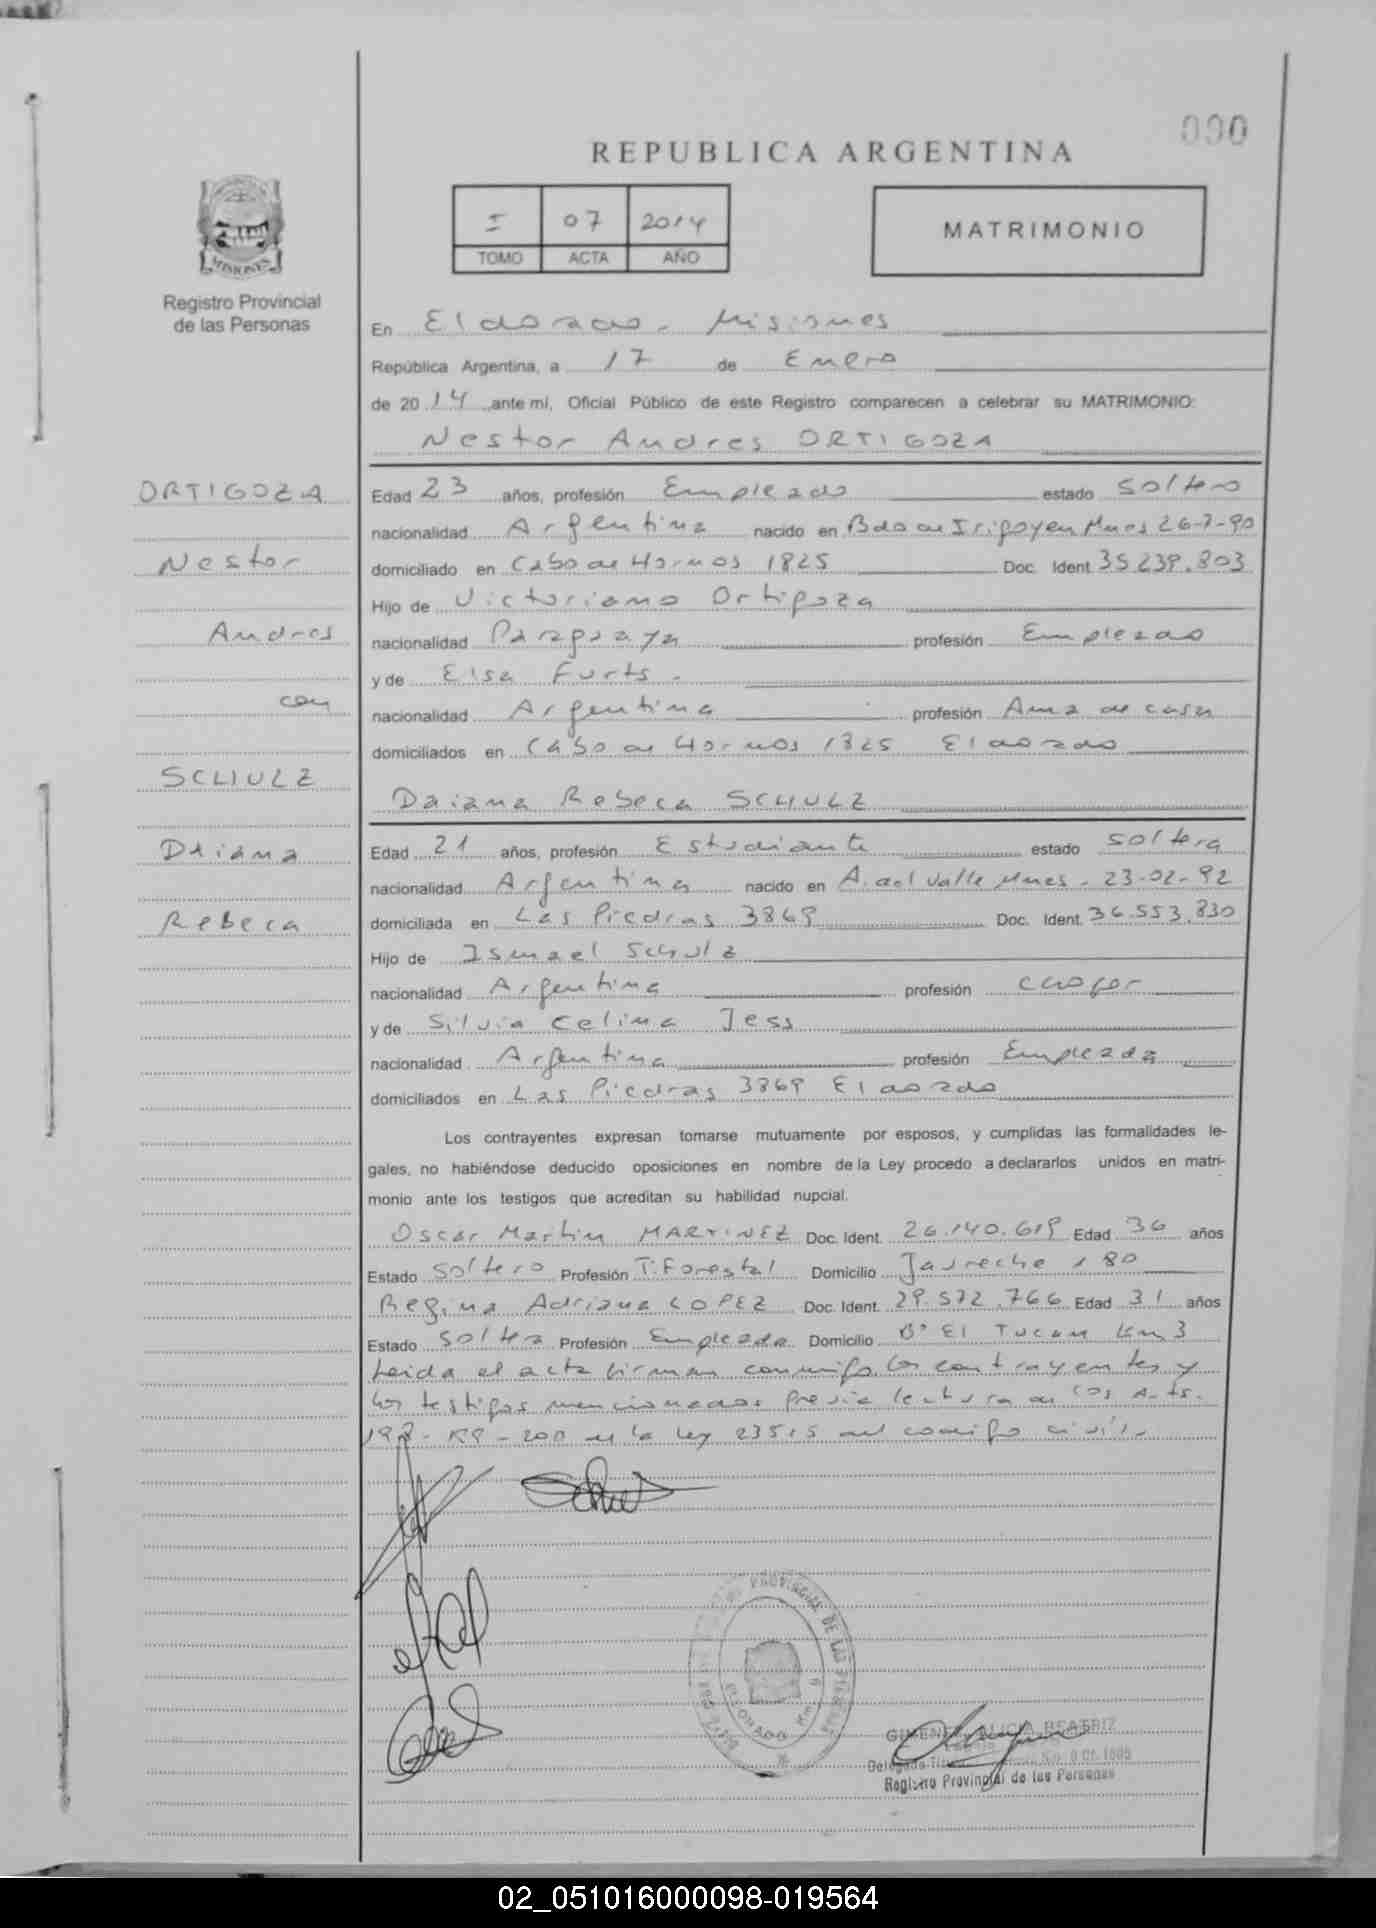 090
REPUBLICA ARGENTINA
I 07 2014
TOMO ACTA AÑO
MATRIMONIO
MISIONES
Registro Provincial
de las Personas
En Eldorado. Misiones
República Argentina, a 17 de Enero
de 20 14 ante mí, Oficial Público de este Registro comparecen a celebrar su MATRIMONIO:
Nestor Andres ORTIGOZA
ORTIGOZA
Nestor
Andres
con
SCHULZ
Daiana
Rebeca
Edad 23 años, profesión Empleado estado soltero
nacionalidad Argentina nacido en Bdo de Irigoyen Mnes 26-7-90
domiciliado en Cabo de Hornos 1825 Doc. Ident. 35.239.803
Hijo de Victoriano Ortigoza
nacionalidad Paraguaya profesión Empleado
y de Elsa Furts.
nacionalidad Argentina profesión Ama de casa
domiciliados en Cabo de Hornos 1825 Eldorado
Daiana Rebeca SCHULZ
Edad 21 años, profesión Estudiante estado soltera
nacionalidad Argentina nacido en A. del Valle Mnes. 23-02-92
domiciliada en Las Piedras 3869 Doc. Ident. 36.553.830
Hijo de Ismael Schulz
nacionalidad Argentina profesión chofer
y de Silvia Celina Jess
nacionalidad Argentina profesión Empleada
domiciliados en Las Piedras 3869 Eldorado
Los contrayentes expresan tomarse mutuamente por esposos, y cumplidas las formalidades le-
gales, no habiéndose deducido oposiciones en nombre de la Ley procedo a declararlos unidos en matri-
monio ante los testigos que acreditan su habilidad nupcial.
Oscar Martin MARTINEZ Doc. Ident. 26.140.619 Edad 36 años
Estado Soltero Profesión T. Forestal Domicilio Jaureche 180
Regina Adriana LOPEZ Doc. Ident. 29.572.766 Edad 31 años
Estado Soltera Profesión Empleada Domicilio Bº El Tucan Km 3
Leida el acta firman conmigo los contrayentes y
los testigos mencionados previa lectura de los Arts.
198 - 199 - 200 de la Ley 23515 del codigo civil.
PROVINCIAL DE LAS
ELDORADO Km
GIMENEZ ALICIA BEATRIZ
Registro Provincial de las Personas
02_051016000098-019564